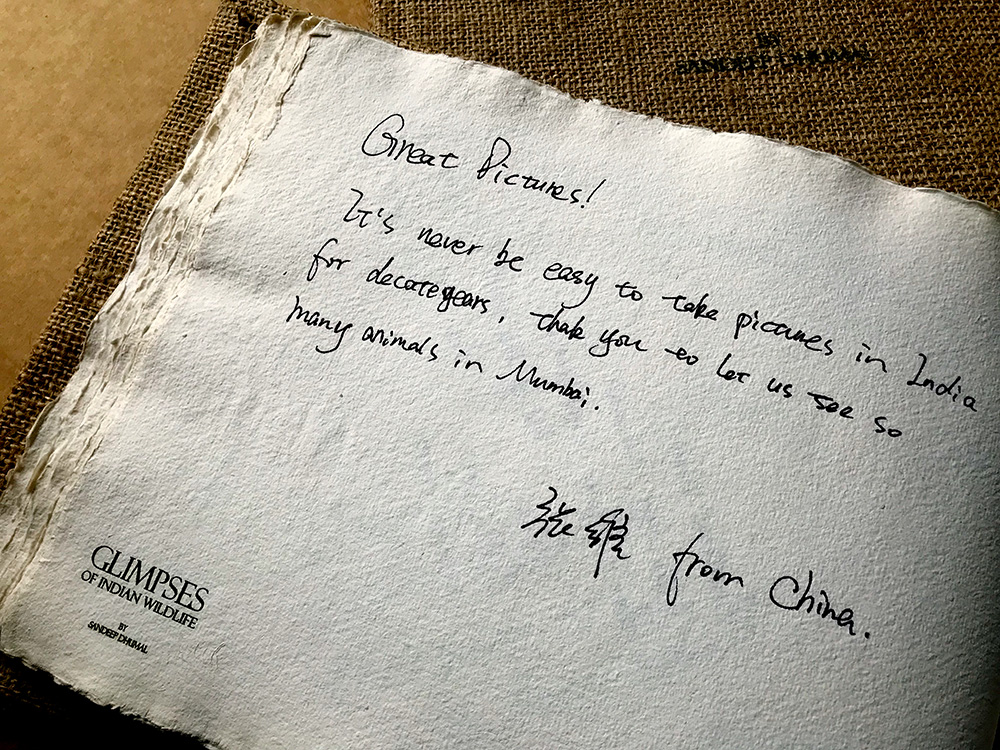 BY
SANDEEP DHUMAL
Great Pictures!
It's never be easy to take pictures in India
for decate years, thak you to let us see so
many animals in Mumbai.
张维 from China.
GLIMPSES
OF INDIAN WILDLIFE
BY
SANDEEP DHUMAL